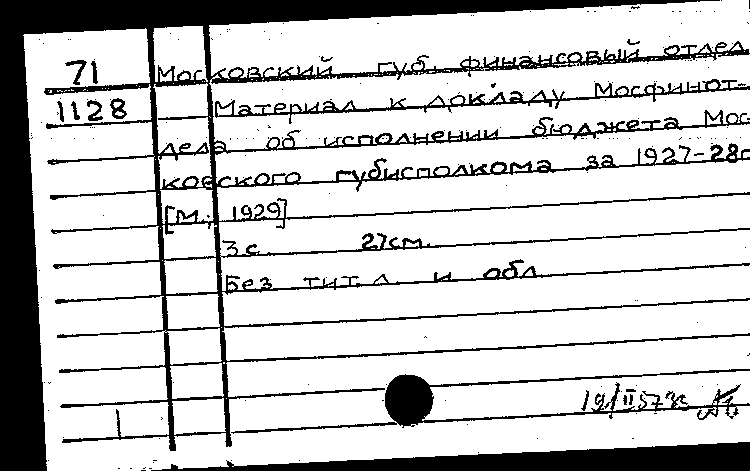 71 Московский губ. финансовый отдел
1128 Материал к докладу Мосфинот-
дела об исполнении бюджета Мос-
ковского губисполкома за 1927-28г
[М., 1929]
3 с. 27см.
Без тит. л. и обл.
19/II 57г.